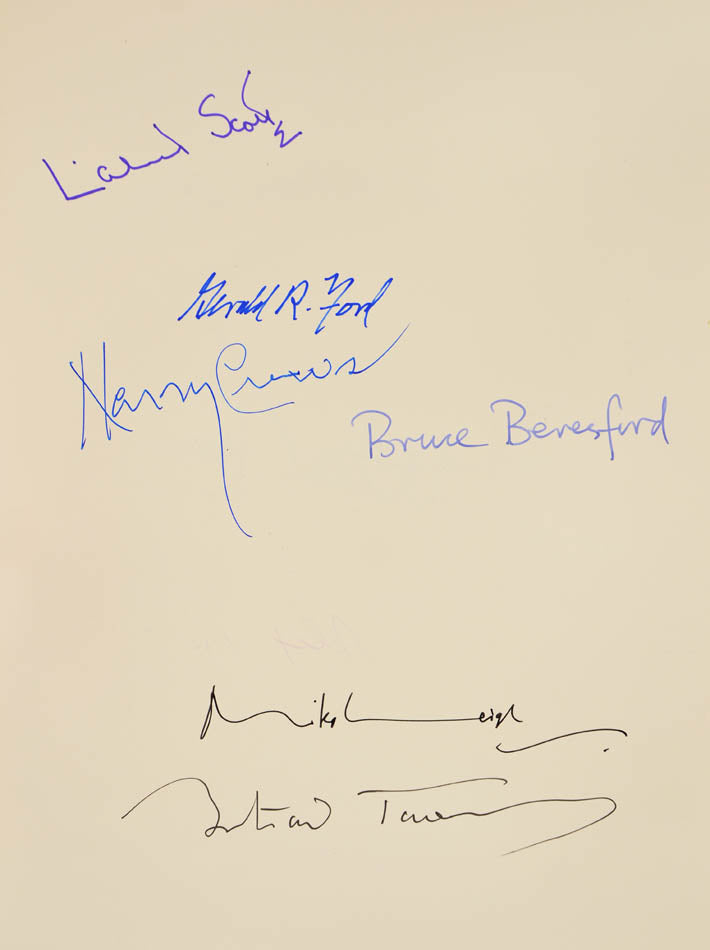 Gerald R. Ford
Harry Crews
Bruce Beresford
Mike Leigh
Bertrand Tavernier